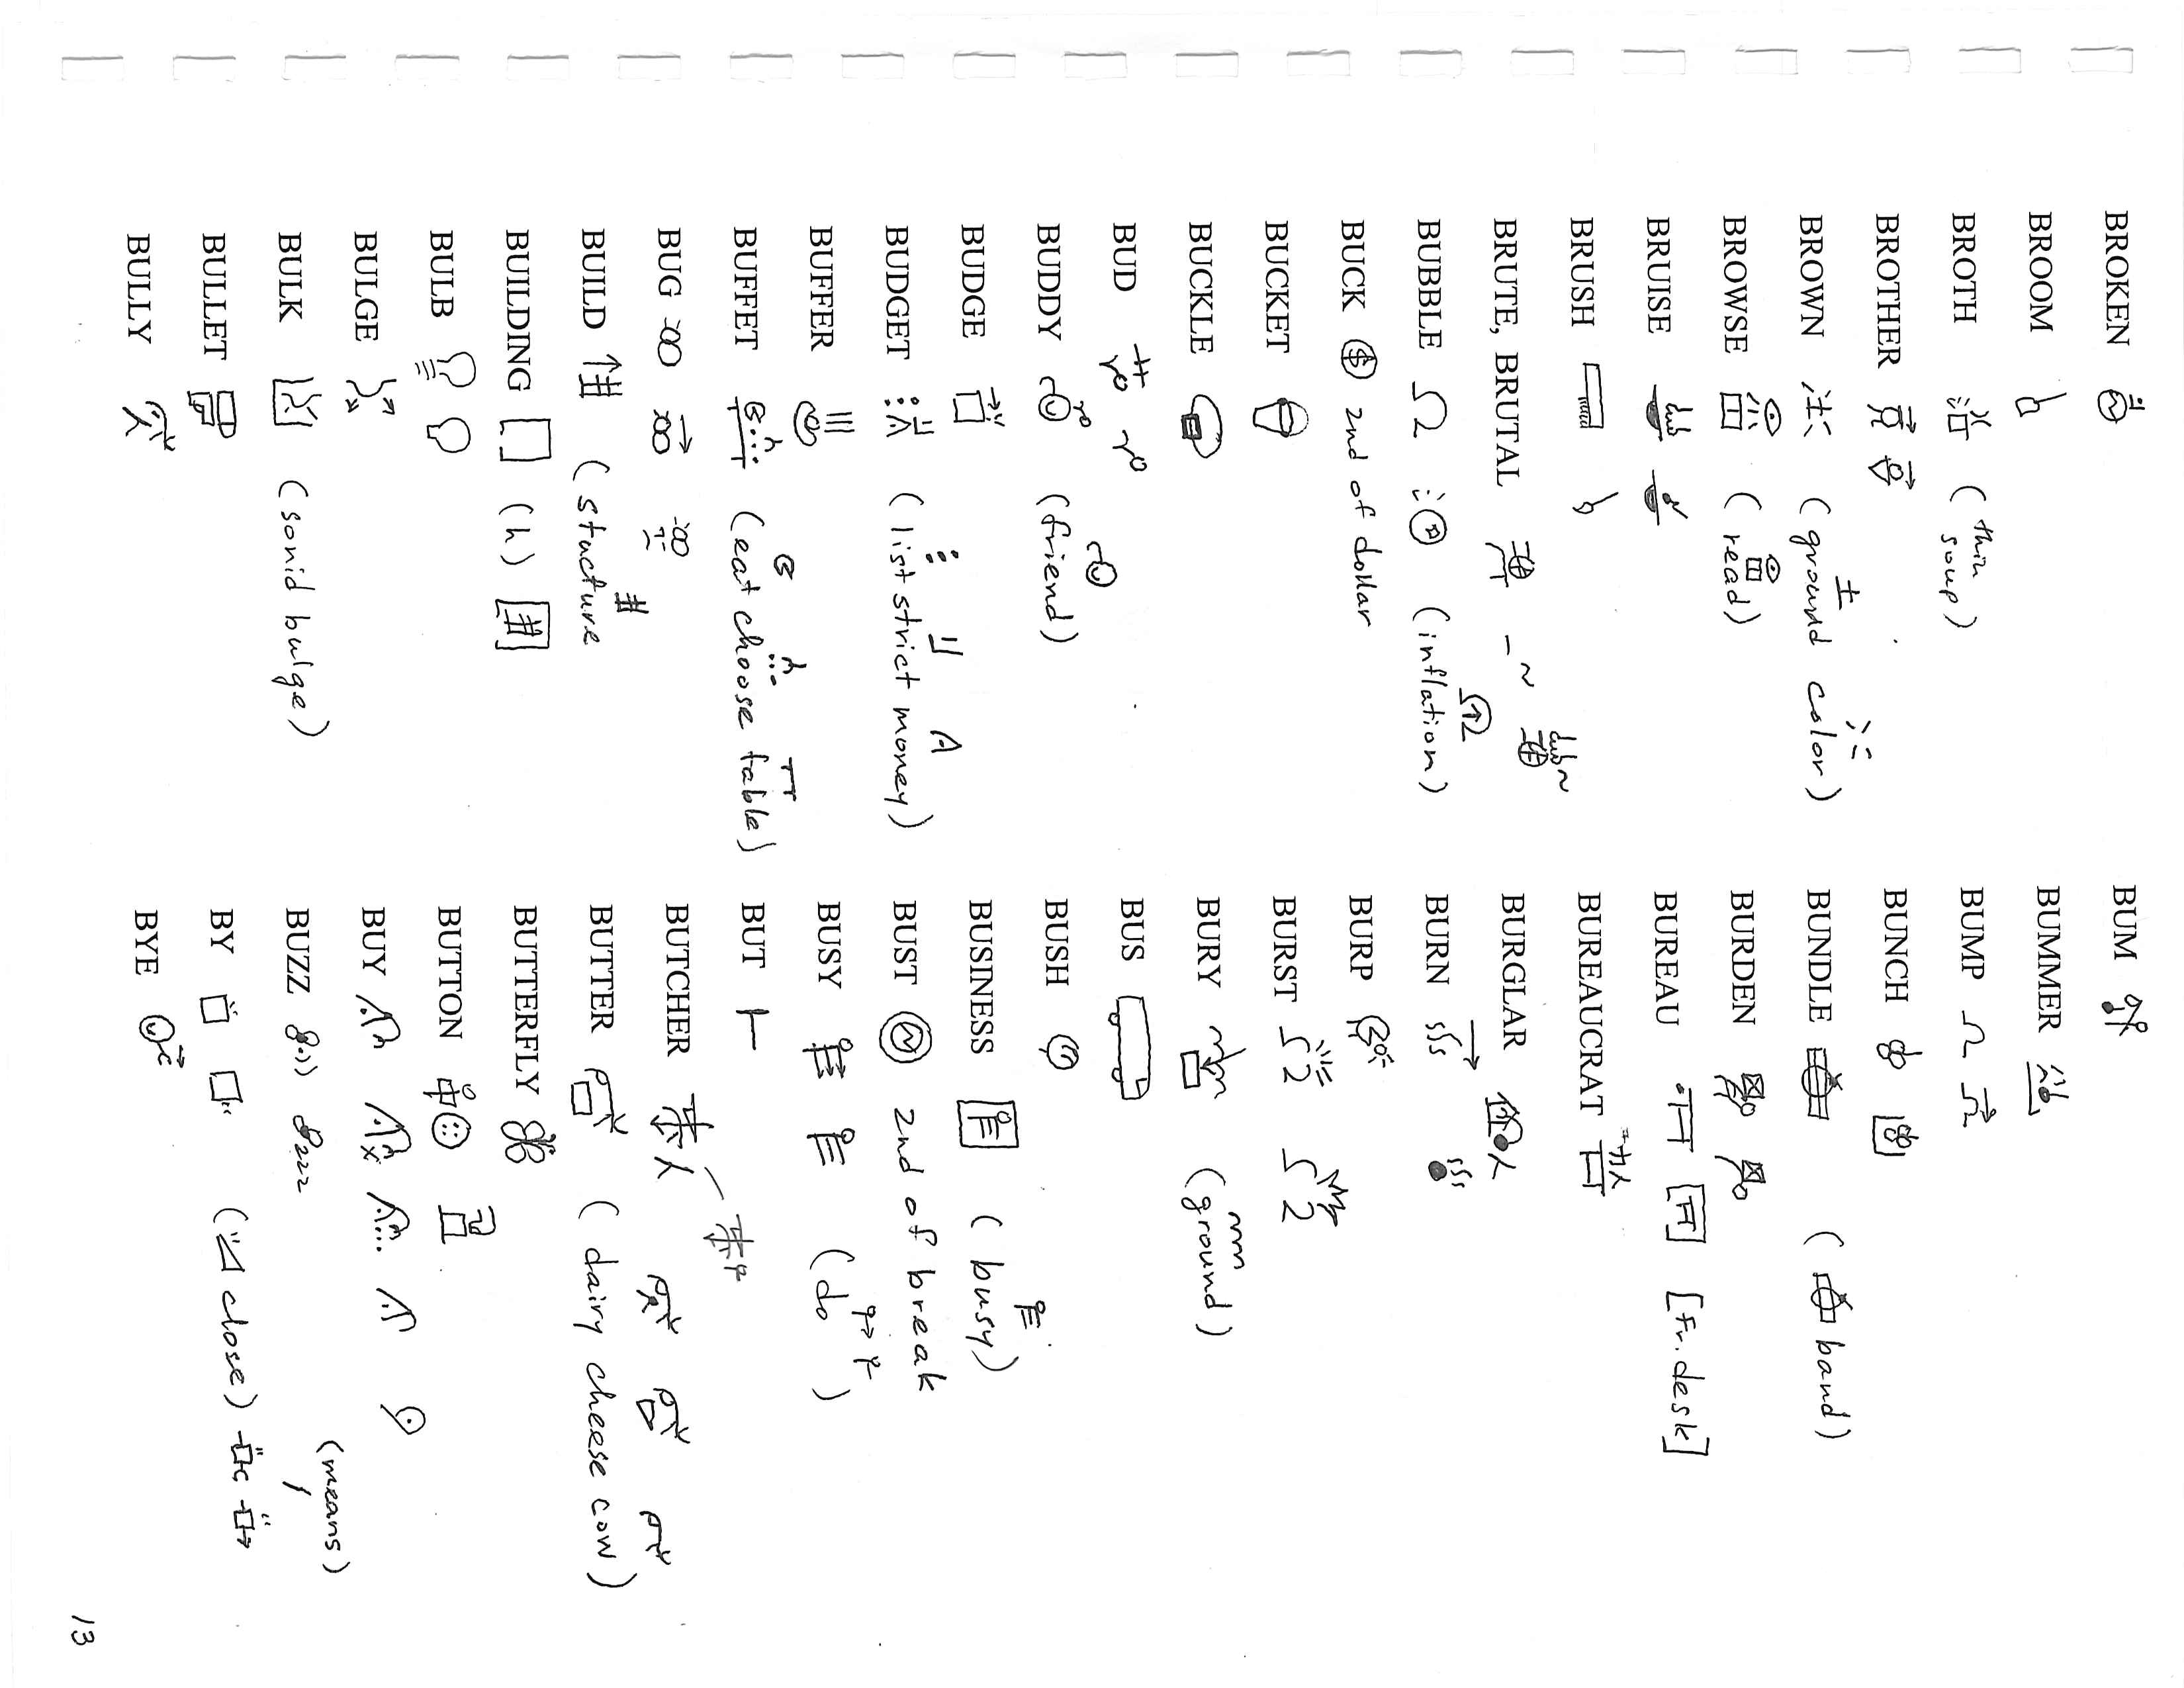 BROKEN
BROOM
BROTH (thin soup)
BROTHER
BROWN (ground color)
BROWSE (read)
BRUISE
BRUSH
BRUTE, BRUTAL
BUBBLE (inflation)
BUCK $ 2nd of dollar
BUCKET
BUCKLE
BUD
BUDDY (friend)
BUDGE
BUDGET (list strict money)
BUFFER
BUFFET (eat choose table)
BUG
BUILD (stucture
BUILDING (h)
BULB
BULGE
BULK (sonid bulge)
BULLET
BULLY
BUM
BUMMER
BUMP
BUNCH
BUNDLE ( band)
BURDEN
BUREAU [Fr. desk]
BUREAUCRAT
BURGLAR
BURN
BURP
BURST
BURY (ground)
BUS
BUSH
BUSINESS (busy)
BUST 2nd of break
BUSY (do )
BUT
BUTCHER
BUTTER (dairy cheese cow)
BUTTERFLY
BUTTON
BUY
BUZZ , (means)
BY ( close)
BYE
13